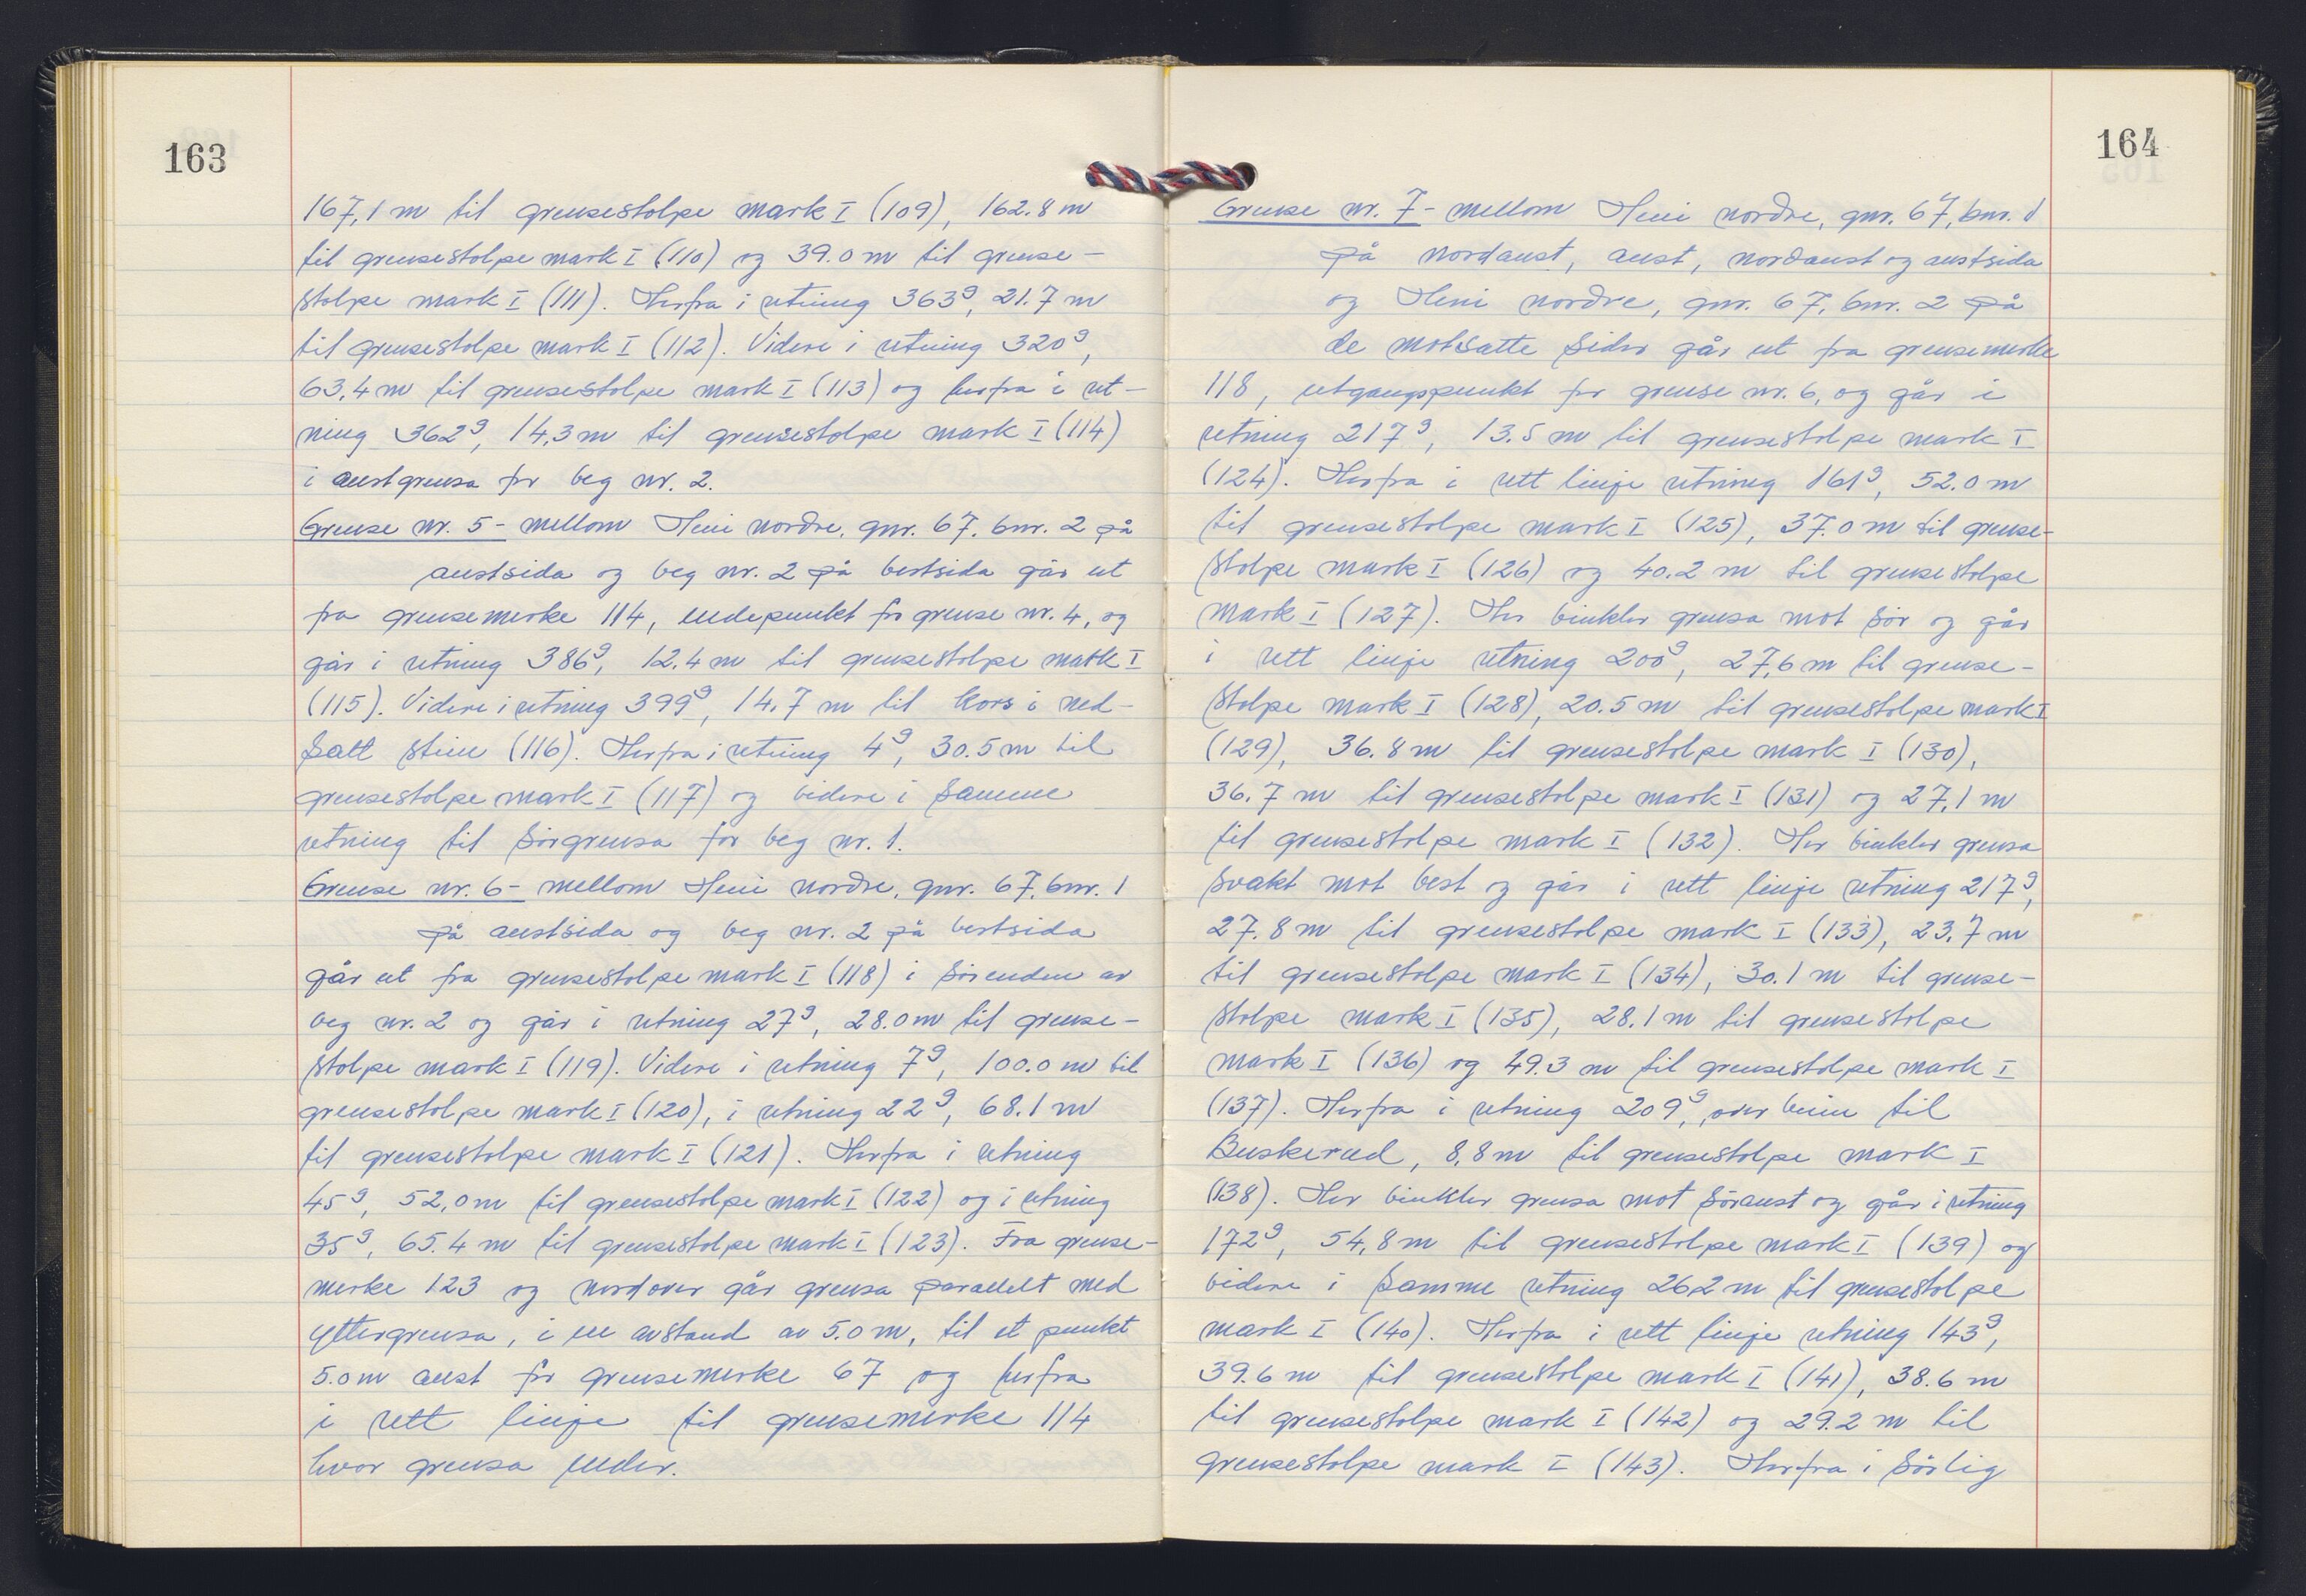 163
167,1 m til grensestolpe mark I (109), 162.8 m
til grensestolpe mark I (110) og 39.0 m til grense-
stolpe mark I (111). Herfra i retning 363g, 21.7 m
til grensestolpe mark I (112). Videre i retning 320g,
63,4 m til grensestolpe mark I (113) og herfra i ret-
ning 362g, 14,3 m til grensestolpe mark I (114)
i austgrensa for veg nr. 2.
Grense nr. 5 - mellom Heni nordre, gnr. 67. bnr. 2 på
austsida og veg nr. 2 på vestsida går ut
fra grensemerke 114, endepunkt for grense nr. 4, og
går i retning 386g, 12.4 m til grensestolpe mark I
(115). Videre i retning 399g, 14.7 m til kors i ned-
satt stein (116). Herfra i retning 4g, 30.5 m til
grensestolpe mark I (117) og videre i samme
retning til sörgrensa for veg nr. 1.
Grense nr. 6 - mellom Heni nordre, gnr. 67, bnr. 1
på austsida og veg nr. 2 på vestsida
går ut fra grensestolpe mark I (118) i sörenden av
veg nr. 2 og går i retning 27g, 28.0 m til grense-
stolpe mark I (119). Videre i retning 7g, 100.0 m til
grensestolpe mark I (120), i retning 22g, 68.1 m
til grensestolpe mark I (121). Herfra i retning
45g, 52,0 m til grensestolpe mark I (122) og i retning
35g, 65.4 m til grensestolpe mark I (123). Fra grense-
merke 123 og nordover går grensa parallelt med
yttergrensa, i en avstand av 5.0 m, til et punkt
5.0 m aust for grensemerke 67 og herfra
i rett linje til grensemerke 114
hvor grensa ender.
164
Grense nr. 7 - mellom Heni nordre, gnr. 67, bnr. 1
på nordaust, aust, nordaust og austsida
og Heni nordre, gnr. 67, bnr. 2 på
de motsatte sider går ut fra grensemerke
118, utgangspunkt for grense nr. 6, og går i
retning 217g, 13.5 m til grensestolpe mark I
(124). Herfra i rett linje retning 161g, 52.0 m
til grensestolpe mark I (125), 37.0 m til grense-
stolpe mark I (126) og 40.2 m til grensestolpe
mark I (127). Her vinkler grensa mot sör og går
i rett linje retning 200g, 27,6 m til grense-
stolpe mark I (128), 20.5 m til grensestolpe mark I
(129), 36.8 m til grensestolpe mark I (130),
36.7 m til grensestolpe mark I (131) og 27,1 m
til grensestolpe mark I (132). Her vinkler grensa
svakt mot vest og går i rett linje retning 217g,
27.8 m til grensestolpe mark I (133), 23.7 m
til grensestolpe mark I (134), 30.1 m til grense-
stolpe mark I (135), 28.1 m til grensestolpe
mark I (136) og 49.3 m til grensestolpe mark I
(137). Herfra i retning 209g, over veien til
Buskerud, 8,8 m til grensestolpe mark I
(138). Her vinkler grensa mot söraust og går i retning
172g, 54,8 m til grensestolpe mark I (139) og
videre i samme retning 26.2 m til grensestolpe
mark I (140). Herfra i rett linje retning 143g,
39.6 m til grensestolpe mark I (141), 38.6 m
til grensestolpe mark I (142) og 29.2 m til
grensestolpe mark I (143). Herfra i sörlig